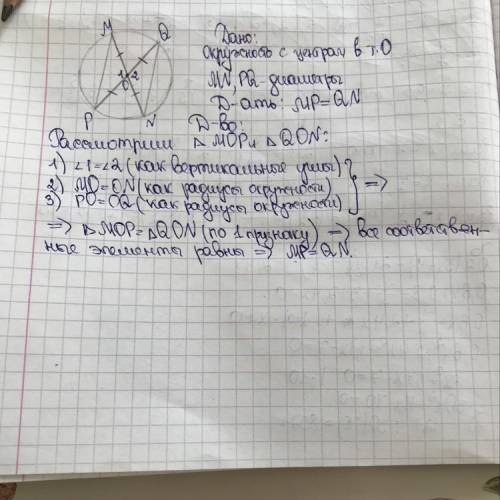 M
Q
Дано:
окружность с центрам в т.О
1 2
O
MN, PQ - диаметры
Д-ать: MP = QN
P
N
Д-во:
Рассмотрим △ MOP и △ QON:
1) ∠1=∠2 (как вертикальные углы)
2) MO=ON (как радиусы окружности) } =>
3) PO=OQ (как радиусы окружности)
=> △ MOP = △ QON (по 1 признаку) => все соответствен-
ные элементы равны => MP = QN.